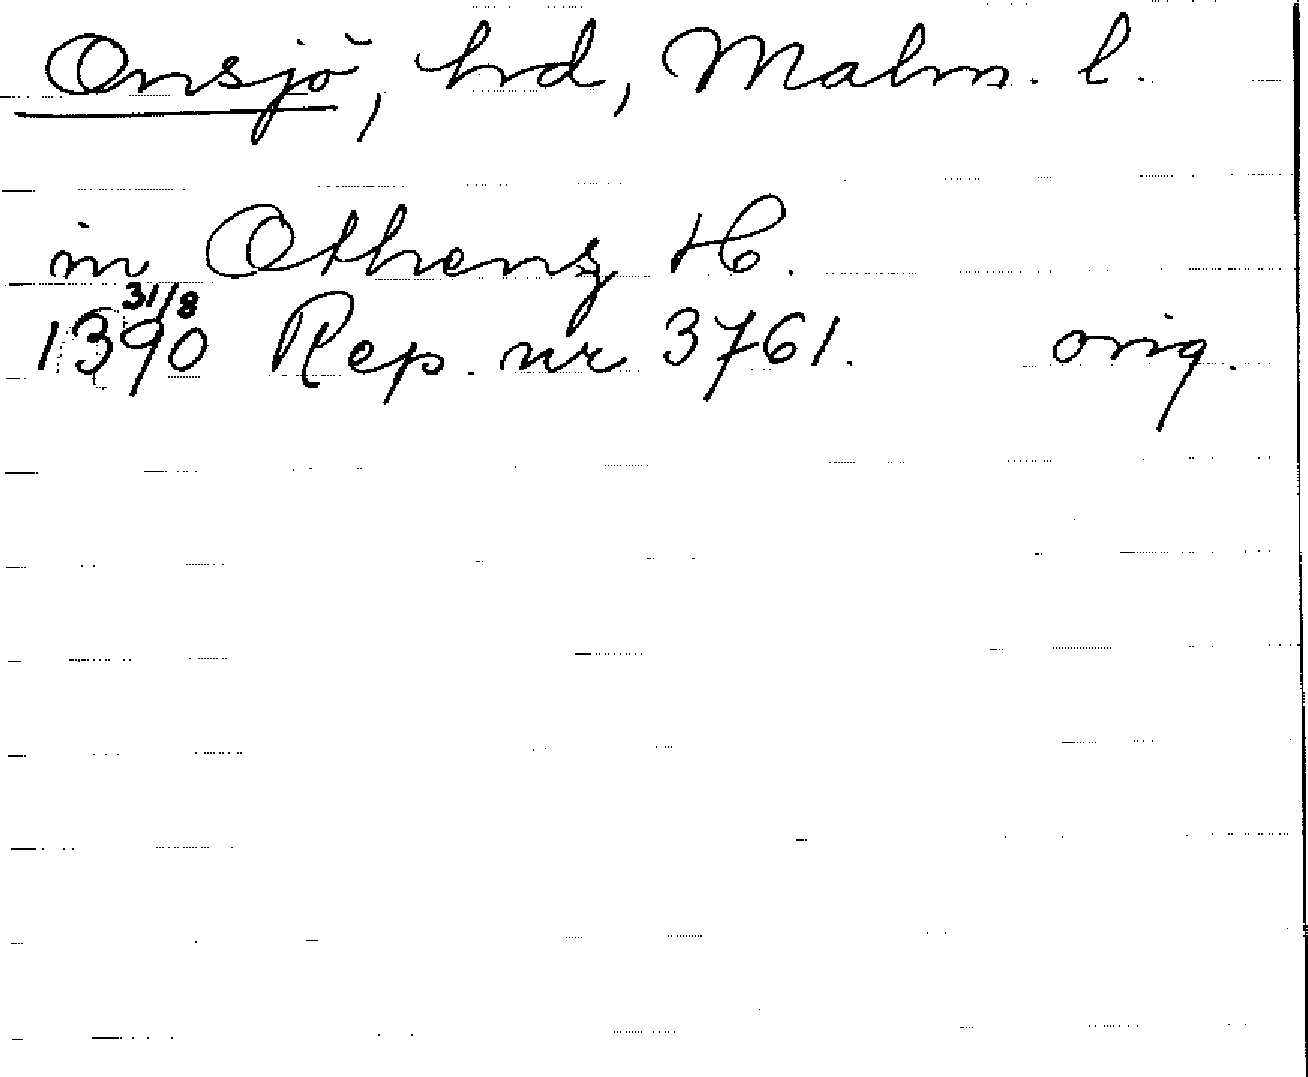 Onsjö, hrd, Malm. l.
in Othensz H.
31/8
1390 Rep. nr 3761. orig.